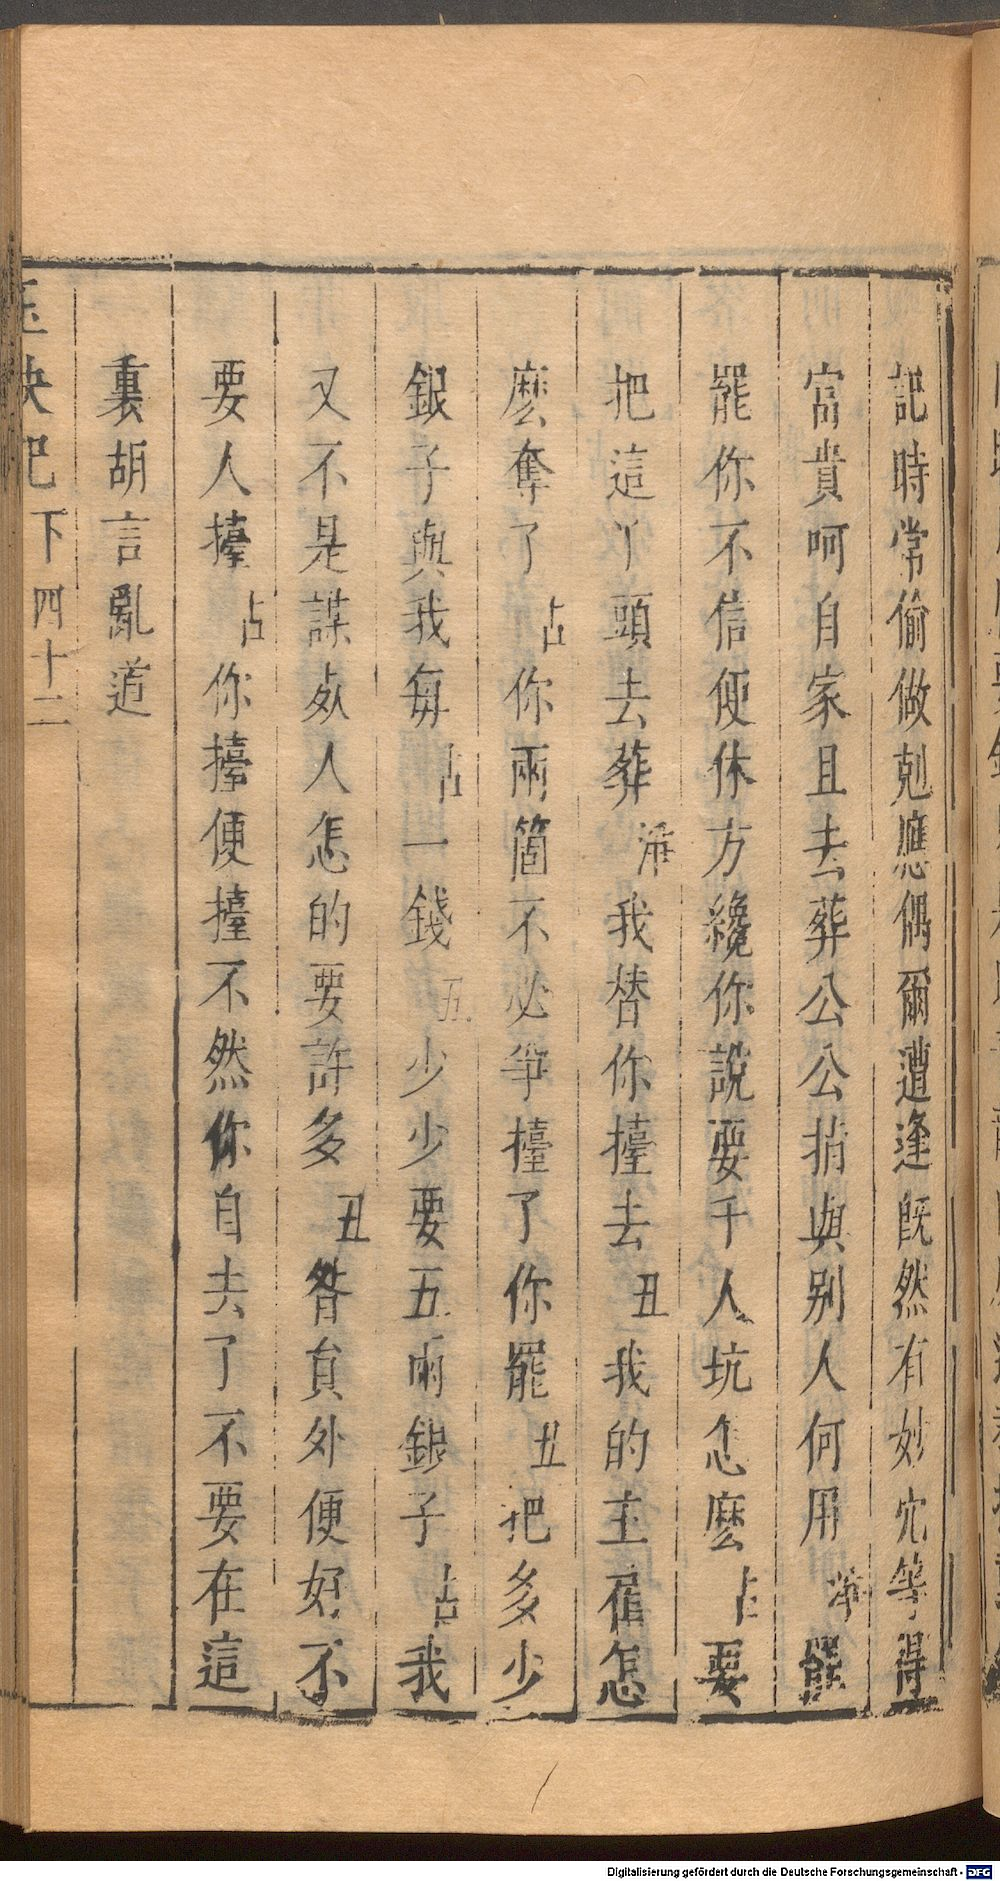 記時常偷做尅應偶爾遭逢既然有妙穴等得
富貴呵自家且去葬公公揹與别人何用淨罷
罷你不信便休方纔你說要千人坑怎麼占要
把這丫頭去葬淨我替你擡去丑我的主雇怎
麼奪了占你兩箇不必爭擡了你罷丑把多少
銀子與我每占一錢丑少少要五兩銀子占我
又不是謀𠩄人怎的要許多丑昝負外便好不
要人擡占你擡便擡不然你自去了不要在這
裏胡言亂道
玉玦記下四十二
Digitalisierung gefördert durch die Deutsche Forschungsgemeinschaft - DFG